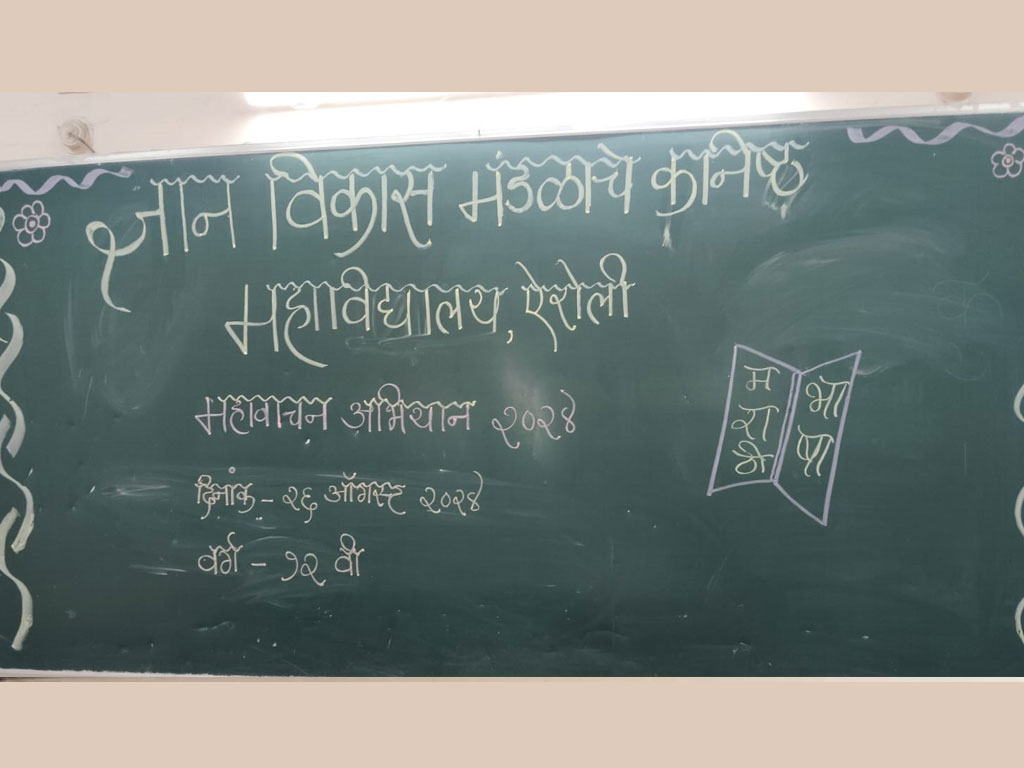 ज्ञान विकास मंडळाचे कनिष्ठ
महाविद्यालय, ऐरोली
महावाचन अभियान २०२४
दिनांक - २६ ऑगस्ट २०२४
वर्ग - १२ वी
म
रा
भा
षा